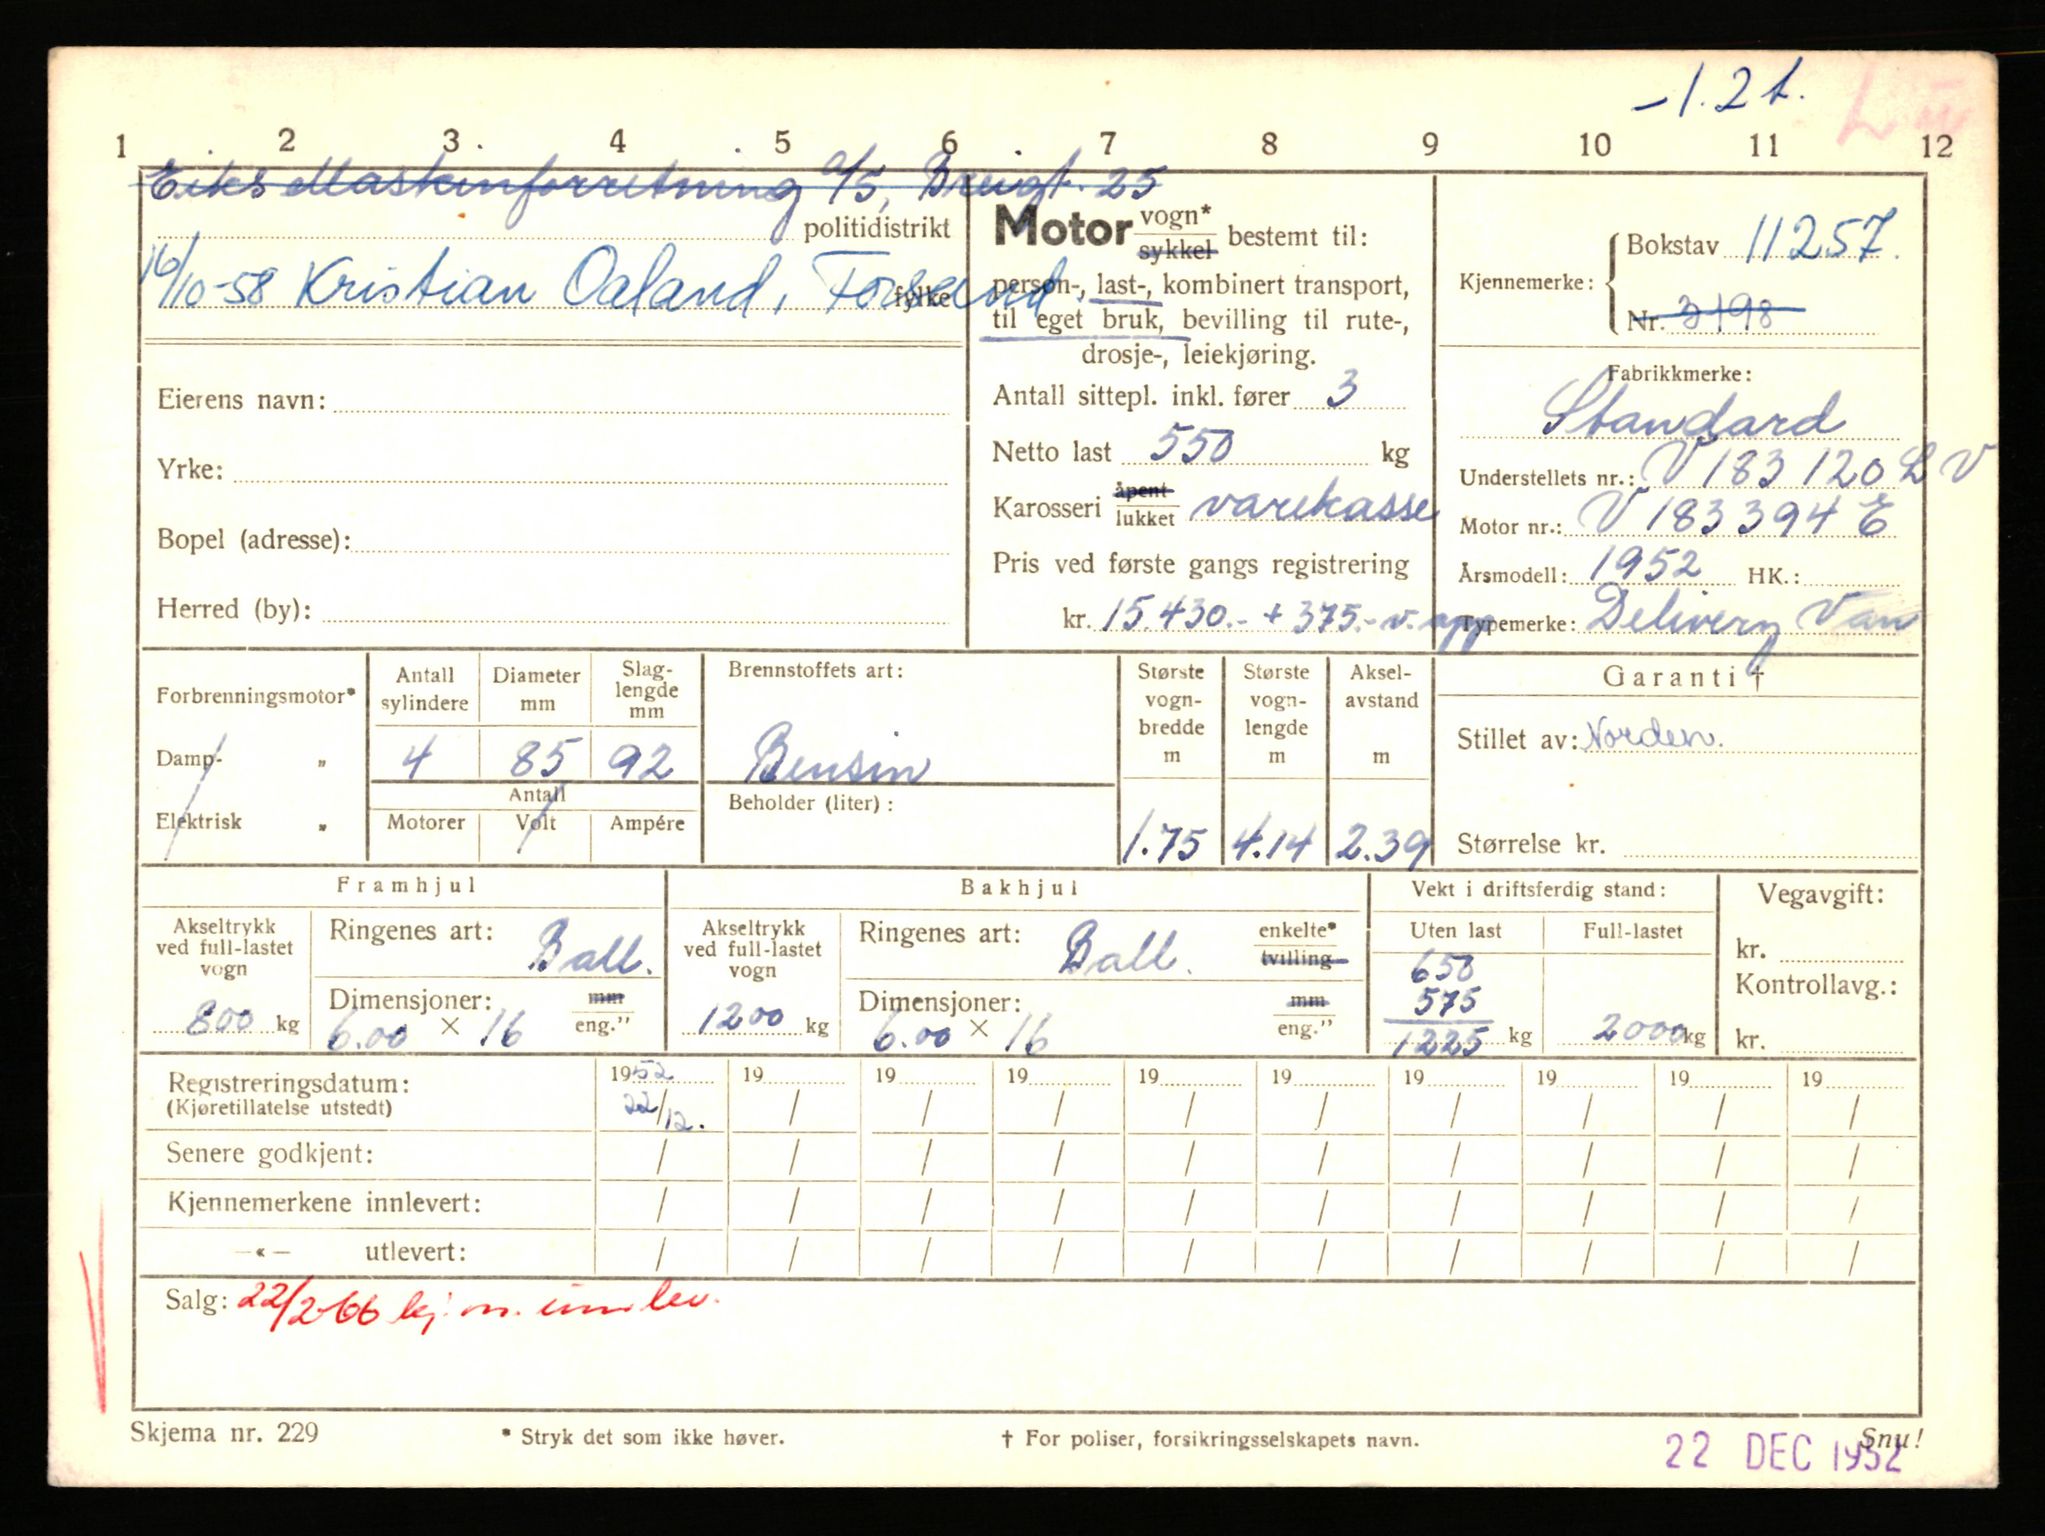 -1.2t.
1 2 3 4 5 6 7 8 9 10 11 12
Eiks Maskinforretning a/s, Breigt. 25
politidistrikt
16/10-58 Kristian Oaland, Forsand
fylke
Eierens navn:
Yrke:
Bopel (adresse):
Herred (by):
Motor vogn* sykkel bestemt til:
person-, last-, kombinert transport,
til eget bruk, bevilling til rute-,
drosje-, leiekjøring.
Antall sittepl. inkl. fører 3
Netto last 550 kg
Karosseri åpent lukket varekasse
Pris ved første gangs registrering
kr. 15.430.- + 375.- v. app
Kjennemerke: Bokstav 11257.
Nr. 3198
Fabrikkmerke:
Standard
Understellets nr.: V 183120 L V
Motor nr.: V 183394 E
Årsmodell: 1952 HK.:
Typemerke: Delivery Van
Forbrenningsmotor*
Damp- "
Elektrisk "
Antall sylindere
4
Diameter mm
85
Slag-
lengde
mm
92
Antall
Motorer Volt Ampére
Brennstoffets art:
Bensin
Beholder (liter):
Største
vogn-
bredde
m
1.75
Største
vogn-
lengde
m
4.14
Aksel-
avstand
m
2.39
Garanti †
Stillet av: Norden.
Størrelse kr.
Framhjul
Akseltrykk
ved full-lastet
vogn
800 kg
Ringenes art: Ball.
Dimensjoner: mm
6.00 × 16 eng."
Bakhjul
Akseltrykk
ved full-lastet
vogn
1200 kg
Ringenes art: Ball. enkelte*
tvilling
Dimensjoner: mm
6.00 × 16 eng."
Vekt i driftsferdig stand:
Uten last
650
575
1225 kg
Full-lastet
2000 kg
Vegavgift:
kr.
Kontrollavg.:
kr.
Registreringsdatum: 1952 19 19 19 19 19 19 19 19 19
(Kjøretillatelse utstedt) 22/12. / / / / / / / / /
Senere godkjent: / / / / / / / / / /
Kjennemerkene innlevert: / / / / / / / / / /
—«— utlevert: / / / / / / / / / /
Salg: 22/2-66 kj. m. innlev.
Skjema nr. 229
* Stryk det som ikke høver.
† For poliser, forsikringsselskapets navn.
Snu!
22 DEC 1952